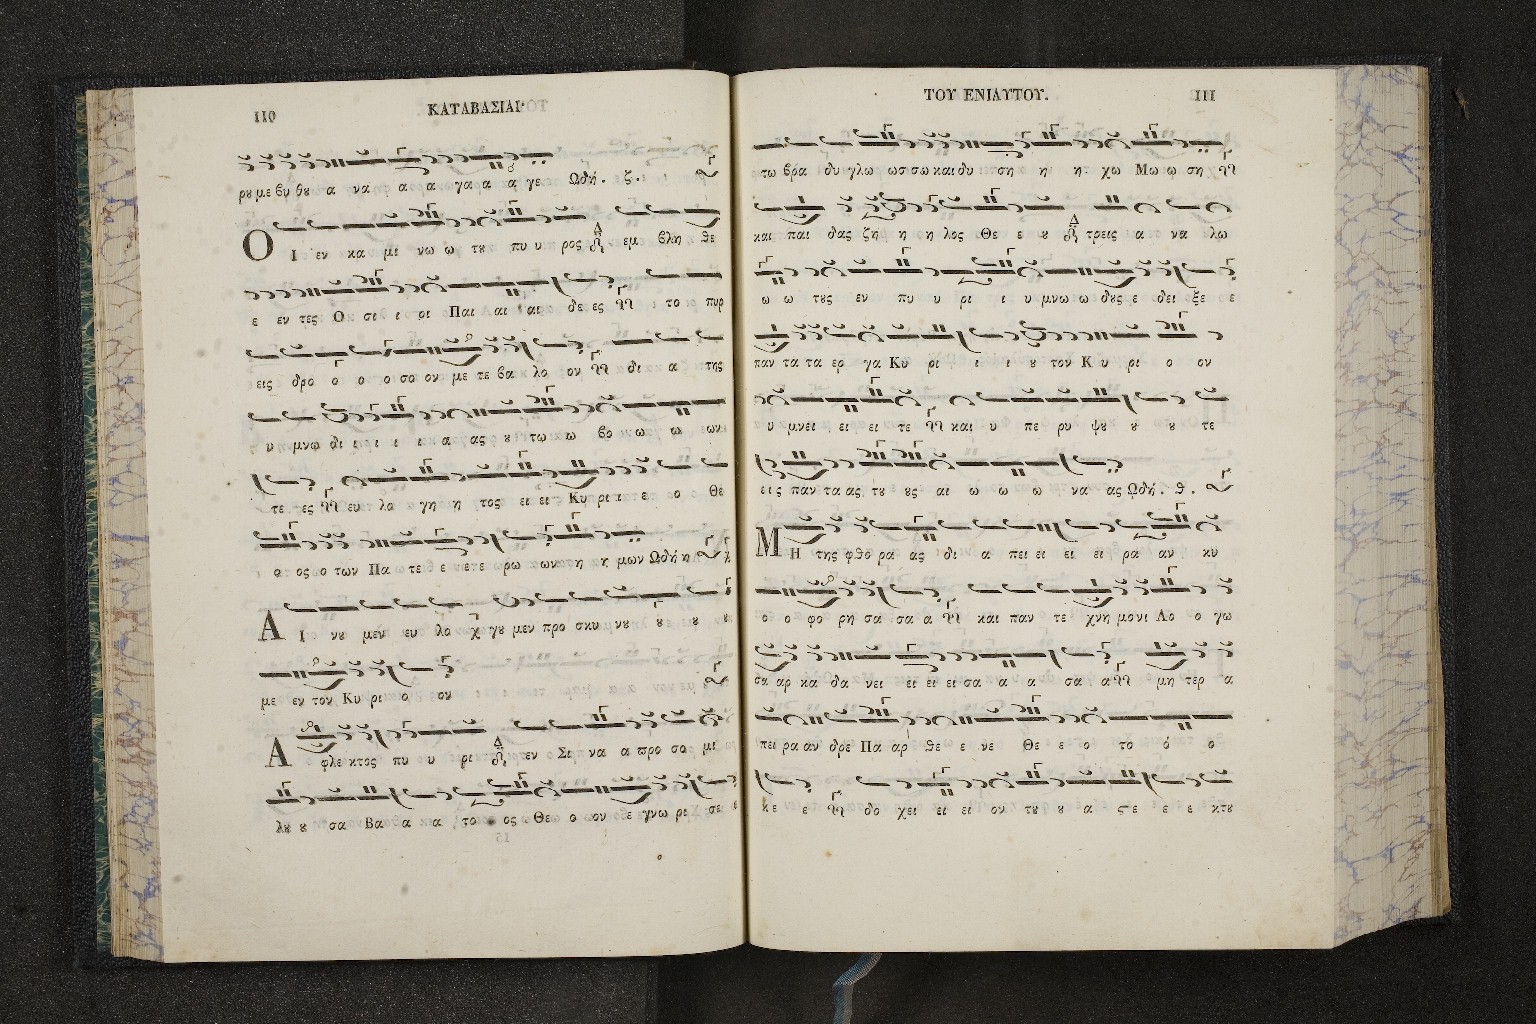 110
ΚΑΤΑΒΑΣΙΑΙ
ρου με βυ θου α να α α γα α α γε Ωδή. ζ.
ΟΙ εν κα μι νω ω του πυ υ ρος εμ βλη θε
ε εν τες Ο σι ι οι Παι αι αι δε ες το πυρ
εις δρο ο ο ο σο ον με τε βα λο ον δι α της
υ μνω δι ι ι ι ι α ας ου τω ω βο ω ω ων
τε ες ευ λο γη η τος ει ει Κυ ρι ι ε ο Θε
ο ος ο των Πα τε ε ε τε ρω ων η μων Ωδή η
ΑΙ νου μεν ευ λο γου μεν προ σκυ νου ου ου ου
με εν τον Κυ ρι ο ον
Α φλε κτος πυ υ ρι εν Σι να α προ σο μι
λου ου σα Βα α α α το ος Θε ο ον ε γνω ρι σε
ΤΟΥ ΕΝΙΑΥΤΟΥ.
111
τω βρα δυ γλω ωσ σω και δυ ση η η χω Μω ω ση
και παι δας ζη η η λος Θε ε ου τρεις α να λω
ω ω τους εν πυ υ ρι ι υ μνω ω δους ε δει ξε ε
παν τα τα ερ γα Κυ ρι ι ι ι ου τον Κ υ ρι ο ον
υ μνει ει ει ει τε και υ πε ρυ ψου ου ου τε
εις παν τα ας του ους αι ω ω ω να ας Ωδή. θ.
ΜΗ της φθο ρα ας δι α πει ει ει ει ει ρα αν κυ
ο ο φο ρη σα σα α και παν τε χνη μονι Λο ο γω
σα αρ κα δα νει ει ει ει ει σα α α σα α μη τερ α
πει ρα αν δρε Πα αρ θε ε νε Θε ε ο το ό ο
κε ε δο χει ει ει ει ον του ου α στε ε ε ε κτου